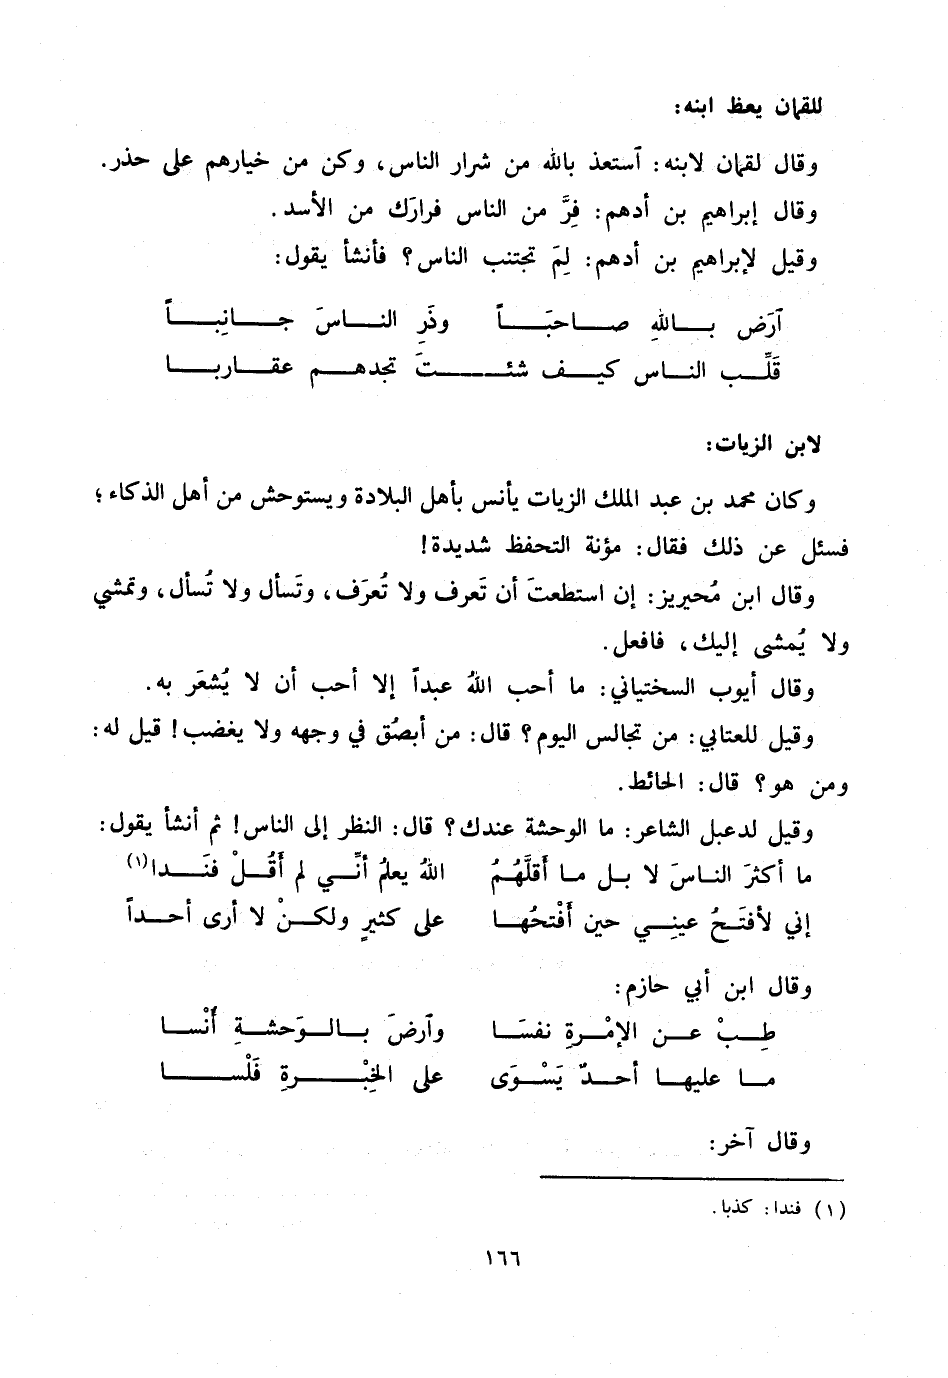 للقمان يعظ ابنه:
وقال لقمان لابنه: آستعذ بالله من شرار الناس، وكن من خيارهم على حذر.
وقال إبراهيم بن أدهم: فِرَّ من الناس فرارَك من الأسد.
وقيل لإبراهيم بن أدهم: لِمَ تجتنب الناس؟ فأنشأ يقول:
آرَض بــاللهِ صــاحبَــاً وذَرِ النــاسَ جــانِبــاً
قَلِّــب النــاس كيــف شئــتَ تجدهــم عقــاربــا
لابن الزيات:
وكان محمد بن عبد الملك الزيات يأنس بأهل البلادة ويستوحش من أهل الذكاء؛
فسئل عن ذلك فقال: مؤنة التحفظ شديدة!
وقال ابن مُحيريز: إن استطعتَ أن تَعرف ولا تُعرَف، وتَسأل ولا تُسأل، وتمشي
ولا يُمشى إليك، فافعل.
وقال أيوب السختياني: ما أحب اللهُ عبداً إلا أحب أن لا يُشعَر به.
وقيل للعتابي: من تجالس اليوم؟ قال: من أبصُق في وجهه ولا يغضب! قيل له:
ومن هو؟ قال: الحائط.
وقيل لدعبل الشاعر: ما الوحشة عندك؟ قال: النظر إلى الناس! ثم أنشأ يقول:
ما أكثرَ النــاسَ لا بــل مــا أَقلَّهُــمُ اللهُ يعلمُ أنِّــي لم أَقُــلْ فنَــدا(١)
إني لأفتَــحُ عينِــي حين أَفْتحُهــا على كثيرٍ ولكــنْ لا أرى أحــداً
وقال ابن أبي حازم:
طِــبْ عــن الإمْــرةِ نفسَــا وآرضَ بــالــوَحشــةِ أُنْســا
مــا عليهــا أحــدٌ يَسْــوَى على الخِبْــرةِ فَلْســا
وقال آخر:
(١) فندا: كذبا.
١٦٦